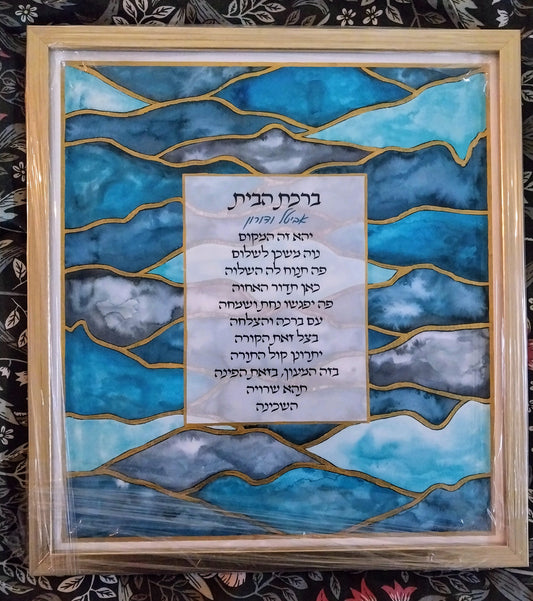 ברכת הבית
אביטל ודורון
יהא זה המקום
נוה משכן לשלום
פה תנוח לה השלוה
כאן תדור האחוה
פה יפגשו נחת ושמחה
עם ברכה והצלחה
בצל זאת הקורה
יתרונן קול התורה
בזה המעון, בזאת הפינה
תהא שרויה
השכינה